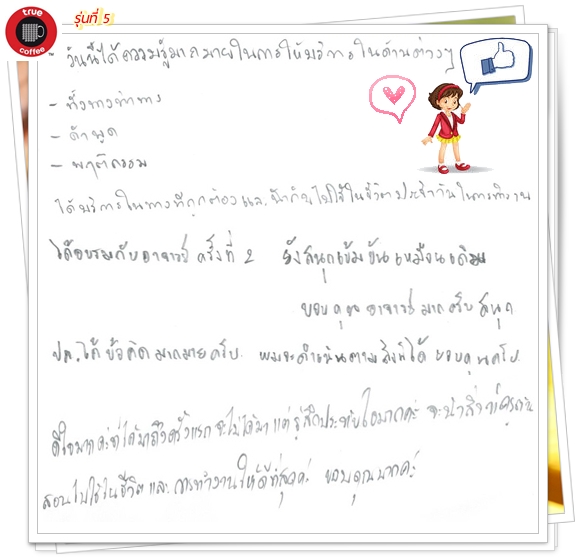 true
coffee
รุ่นที่ 5
- วันนี้ได้ความรู้มากมายในการให้บริการในด้านต่างๆ
- ทั้งทางท่าทาง
- คำพูด
- พฤติกรรม
ได้บริการในทางที่ถูกต้องและนำกับไปใช้ในชีวิตประจำวันในการทำงาน
ได้อบรมกับอาจารย์ ครั้งที่ 2 ยังสนุกเข้มข้นเหมือนเดิม
ขอบคุณอาจารย์มากครับ สนุก
ได้ข้อคิดมากมายครับ ผมจะดำเนินตามสิ่งที่ได้ ขอบคุณครับ
ดีใจมากค่ะที่ได้มาถึงครั้งแรกจะไม่ได้มา แต่รู้สึกประทับใจมากค่ะ จะนำสิ่งที่
สอนไปใช้ในชีวิตและการทำงานให้ดีที่สุดค่ะ ขอบคุณมากค่ะ